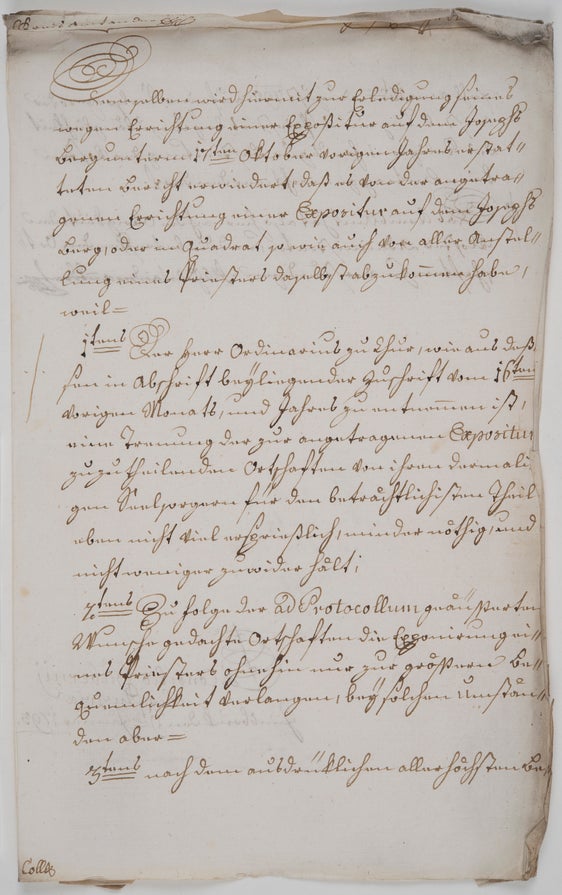 Demselben wird hiermit zur Erledigung seines
wegen Errichtung einer Expositur auf dem Josephs
Berg unterm 17ten Oktober vorigen Jahrs erstat=
teten Bericht erwiedert, daß es von der angetra=
genen Errichtung einer Expositur auf dem Josephs
Berg, oder im Quadrat so wie auch von aller Anstel=
lung eines Priesters daselbst abzukommen habe,
weil=
1tens Der Herr Ordinarius zu Chur, wie aus deß=
sen in Abschrift beyliegender Zuschrift vom 16ten
vorigen Monats, und Jahres zu entnemmen ist,
eine Trenung der zur angetragenen Expositur
zuzutheilenden Ortschaften von ihren dermali=
gen Seelsorgern für den beträchtlichsten Theil
eben nicht viel ersprießlich, minder nöthig, und
nicht weniger zuwider hält;
2tens Zu folge der ad Protocollum geäußerten
Wunsche gedachte Ortschaften die Exponirung ei=
nes Priesters ohnehin nur zur größern Be=
quemlichkeit verlangen, bey solchen Umstän=
den aber=
3tens nach dem ausdrüklichen allerhöchsten Be=